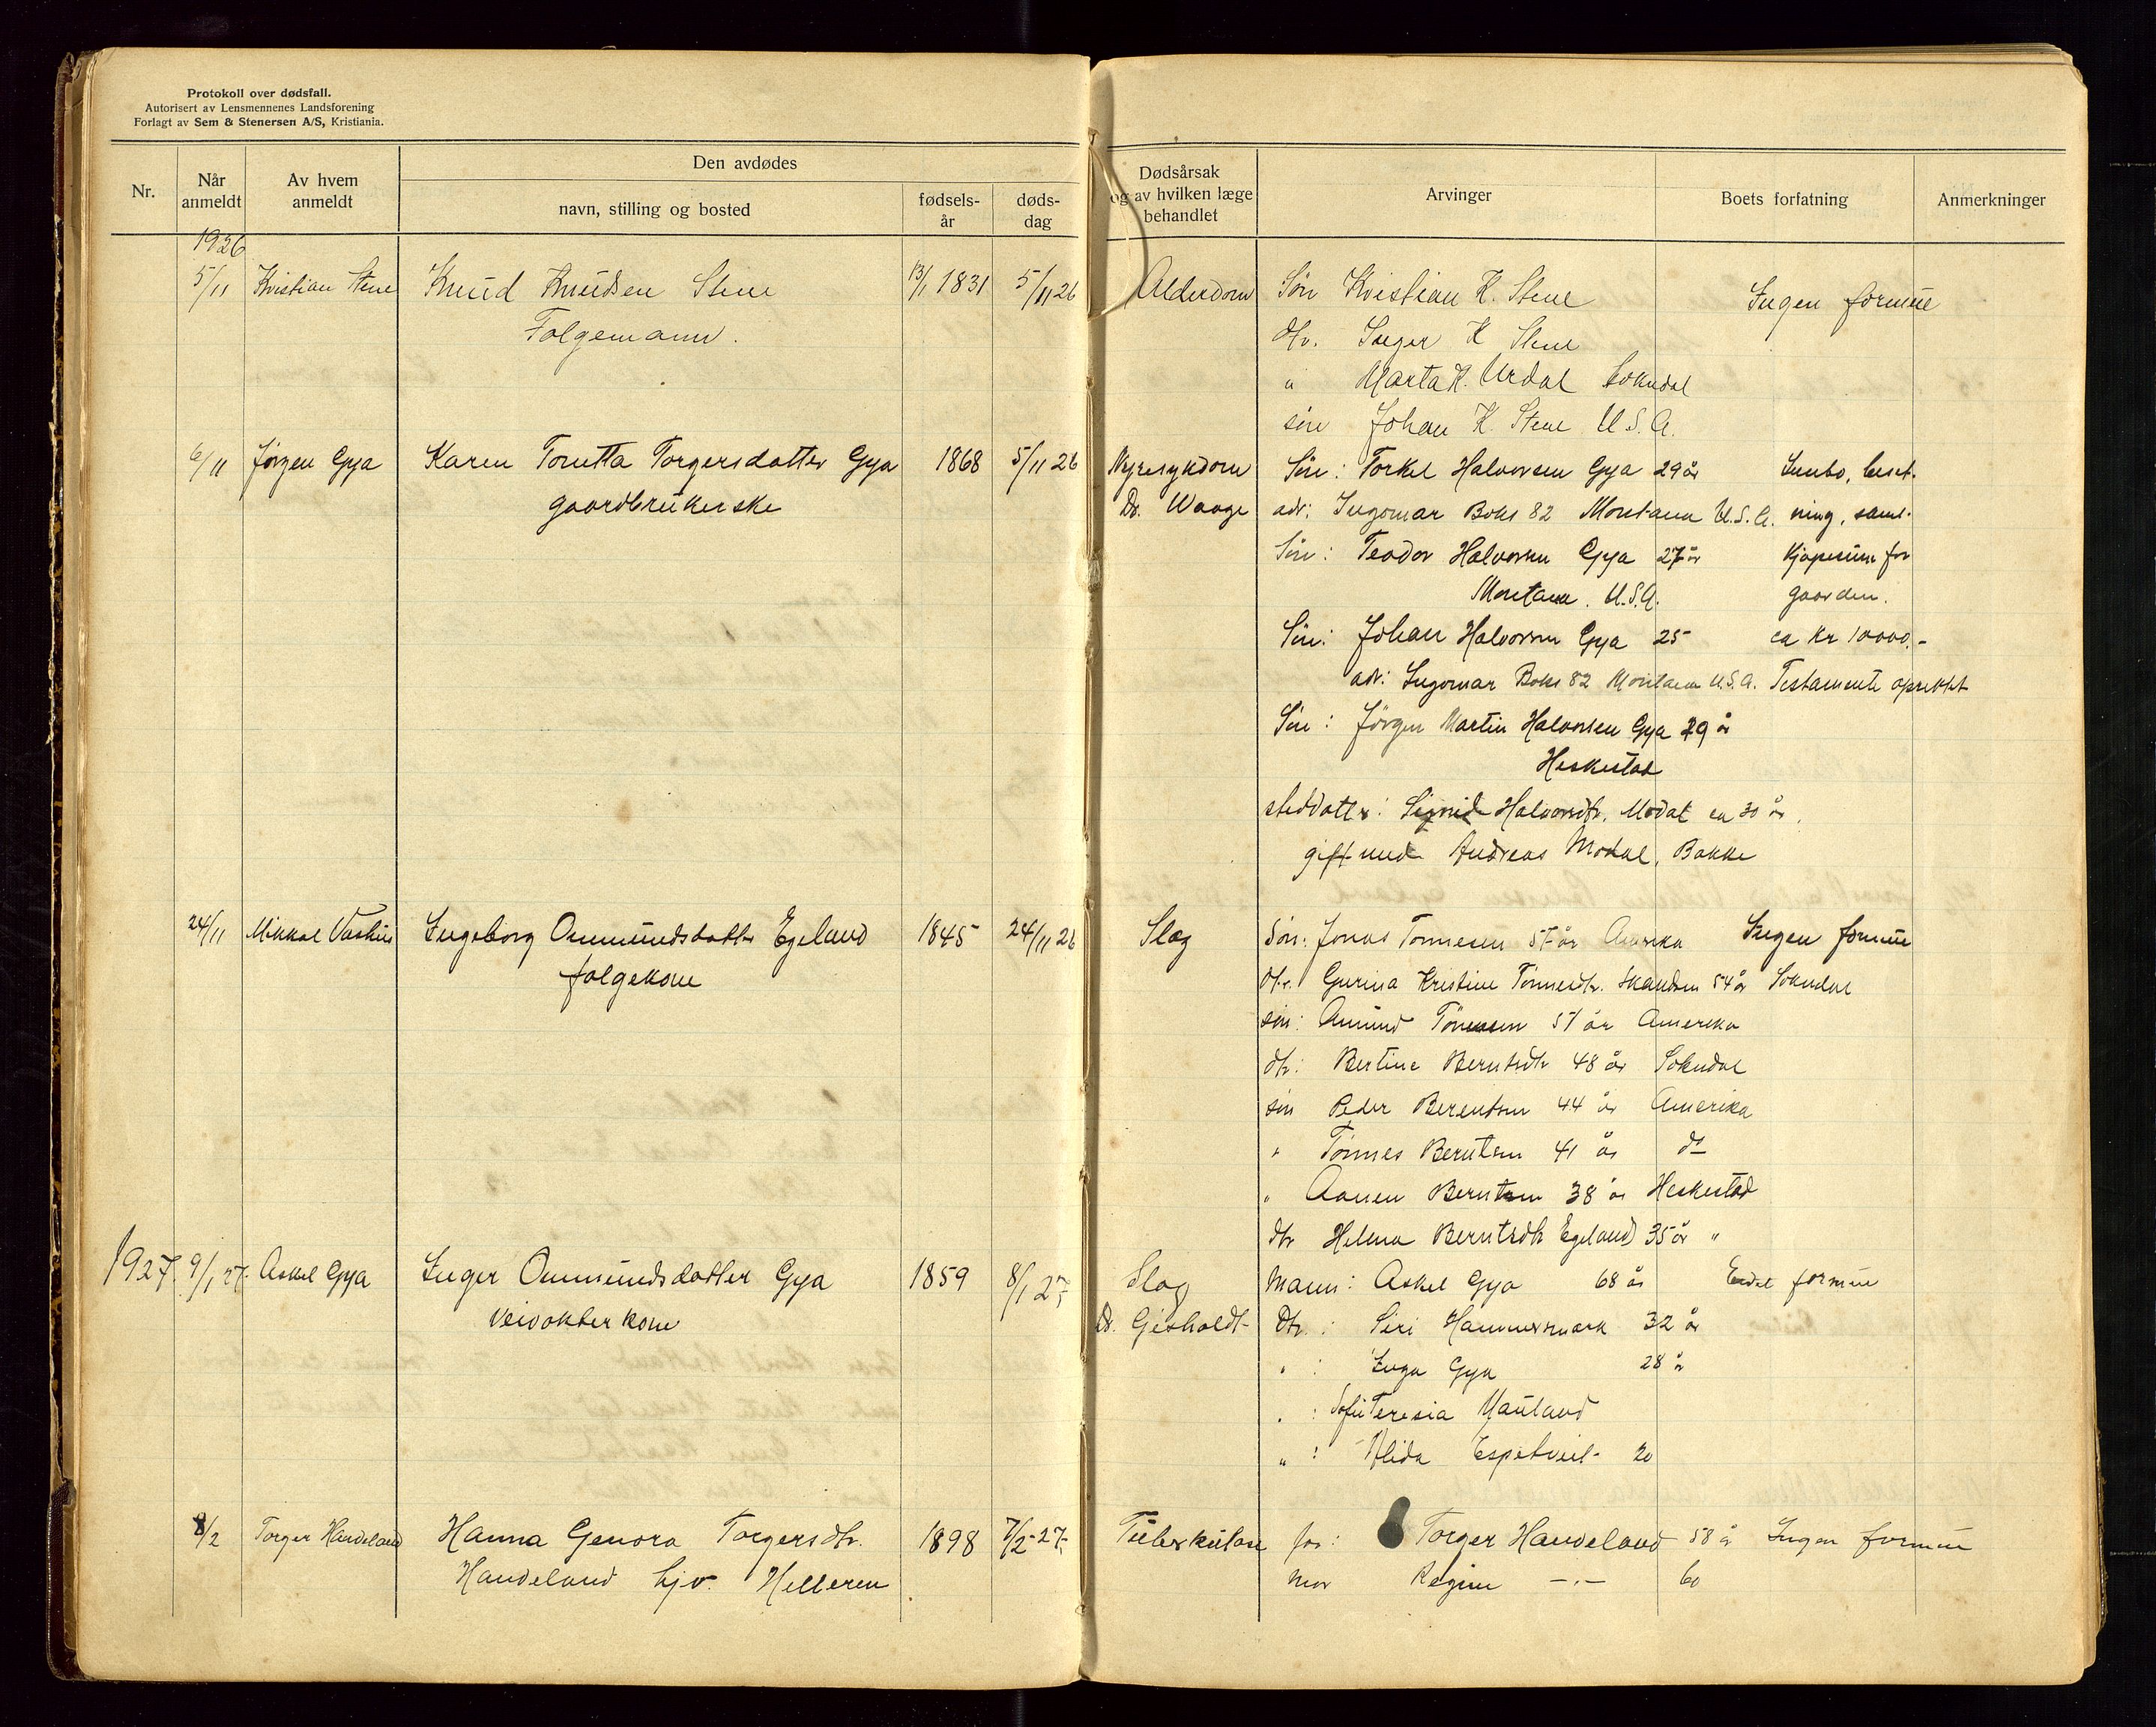 Protokoll over dødsfall.
Autorisert av Lensmennenes Landsforening
Forlagt av Sem & Stenersen A/S, Kristiania.
Nr.
Når anmeldt
Av hvem anmeldt
Den avdødes
navn, stilling og bosted
fødsels-år
døds-dag
Dødsårsak og av hvilken læge behandlet
Arvinger
Boets forfatning
Anmerkninger
1926
5/11 Kristian Stene Knud Knudsen Stene 13/1 1831 5/11 26 Alderdom Søn Kristian K. Stene Ingen formue
Folgemann. dtr. Inger K Stene
" Marta K. Urdal Sokndal
søn Johan K. Stene U.S.A.
6/11 Jørgen Gya Karen Torutta Torgersdatter Gya 1868 5/11 26 Nyresykdom Søn: Torkel Halvorsen Gya 29 år Innbo, beset-
gaardbrukerske Dr. Waage adr: Ingomar Boks 82 Montana U.S.A. ning, saml.
Søn: Teodor Halvorsen Gya 27 år Kjøpesum for
Montana. U.S.A. gaarden.
Søn: Johan Halvorsen Gya 25 ca Kr 10000.-
adr: Ingomar Boks 82 Montana U.S.A. Testamente oprettet
Søn: Jørgen Martin Halvorsen Gya 29 år
Heskestad
steddatter: Sigrid Halvorsdtr. Modal ca 30 år.
gift med Andreas Modal, Bakke
24/11 Mikkal Vashus Ingeborg Ommundsdatter Egeland 1845 24/11 26 Slag Søn: Jonas Tønnesen 57 år Amerika Ingen formue
folgekone dtr. Gurina Kristine Tønnesdtr. Skandsen 54 år Sokndal
søn: Amund Tønnesen 51 år Amerika
dtr: Bertine Berntsdtr 48 år Sokndal
søn Peder Berentsen 44 år Amerika
" Tønnes Berntsen 41 år do
" Aanen Berntsen 38 år Heskestad
dtr Helena Berntsdtr Egeland 35 år "
1927. 9/1 27. Askel Gya Inger Ommundsdatter Gya 1859 8/1 27, Slag Mann: Askel Gya 68 år Endel formue
veivokterkone Dr. Gjesholdt Dtr.: Siri Hammersmark 32 år
" : Inga Gya 28 år
" : Sofie Teresia Mauland
" : Alida Espetveit 20
8/2 Torger Handeland Hanna Genora Torgersdtr. 1898 7/2 27, Tuberkulose far: Torger Handeland 58 år Ingen formue
Handeland hjv. Helleren mor Regine —.— 60